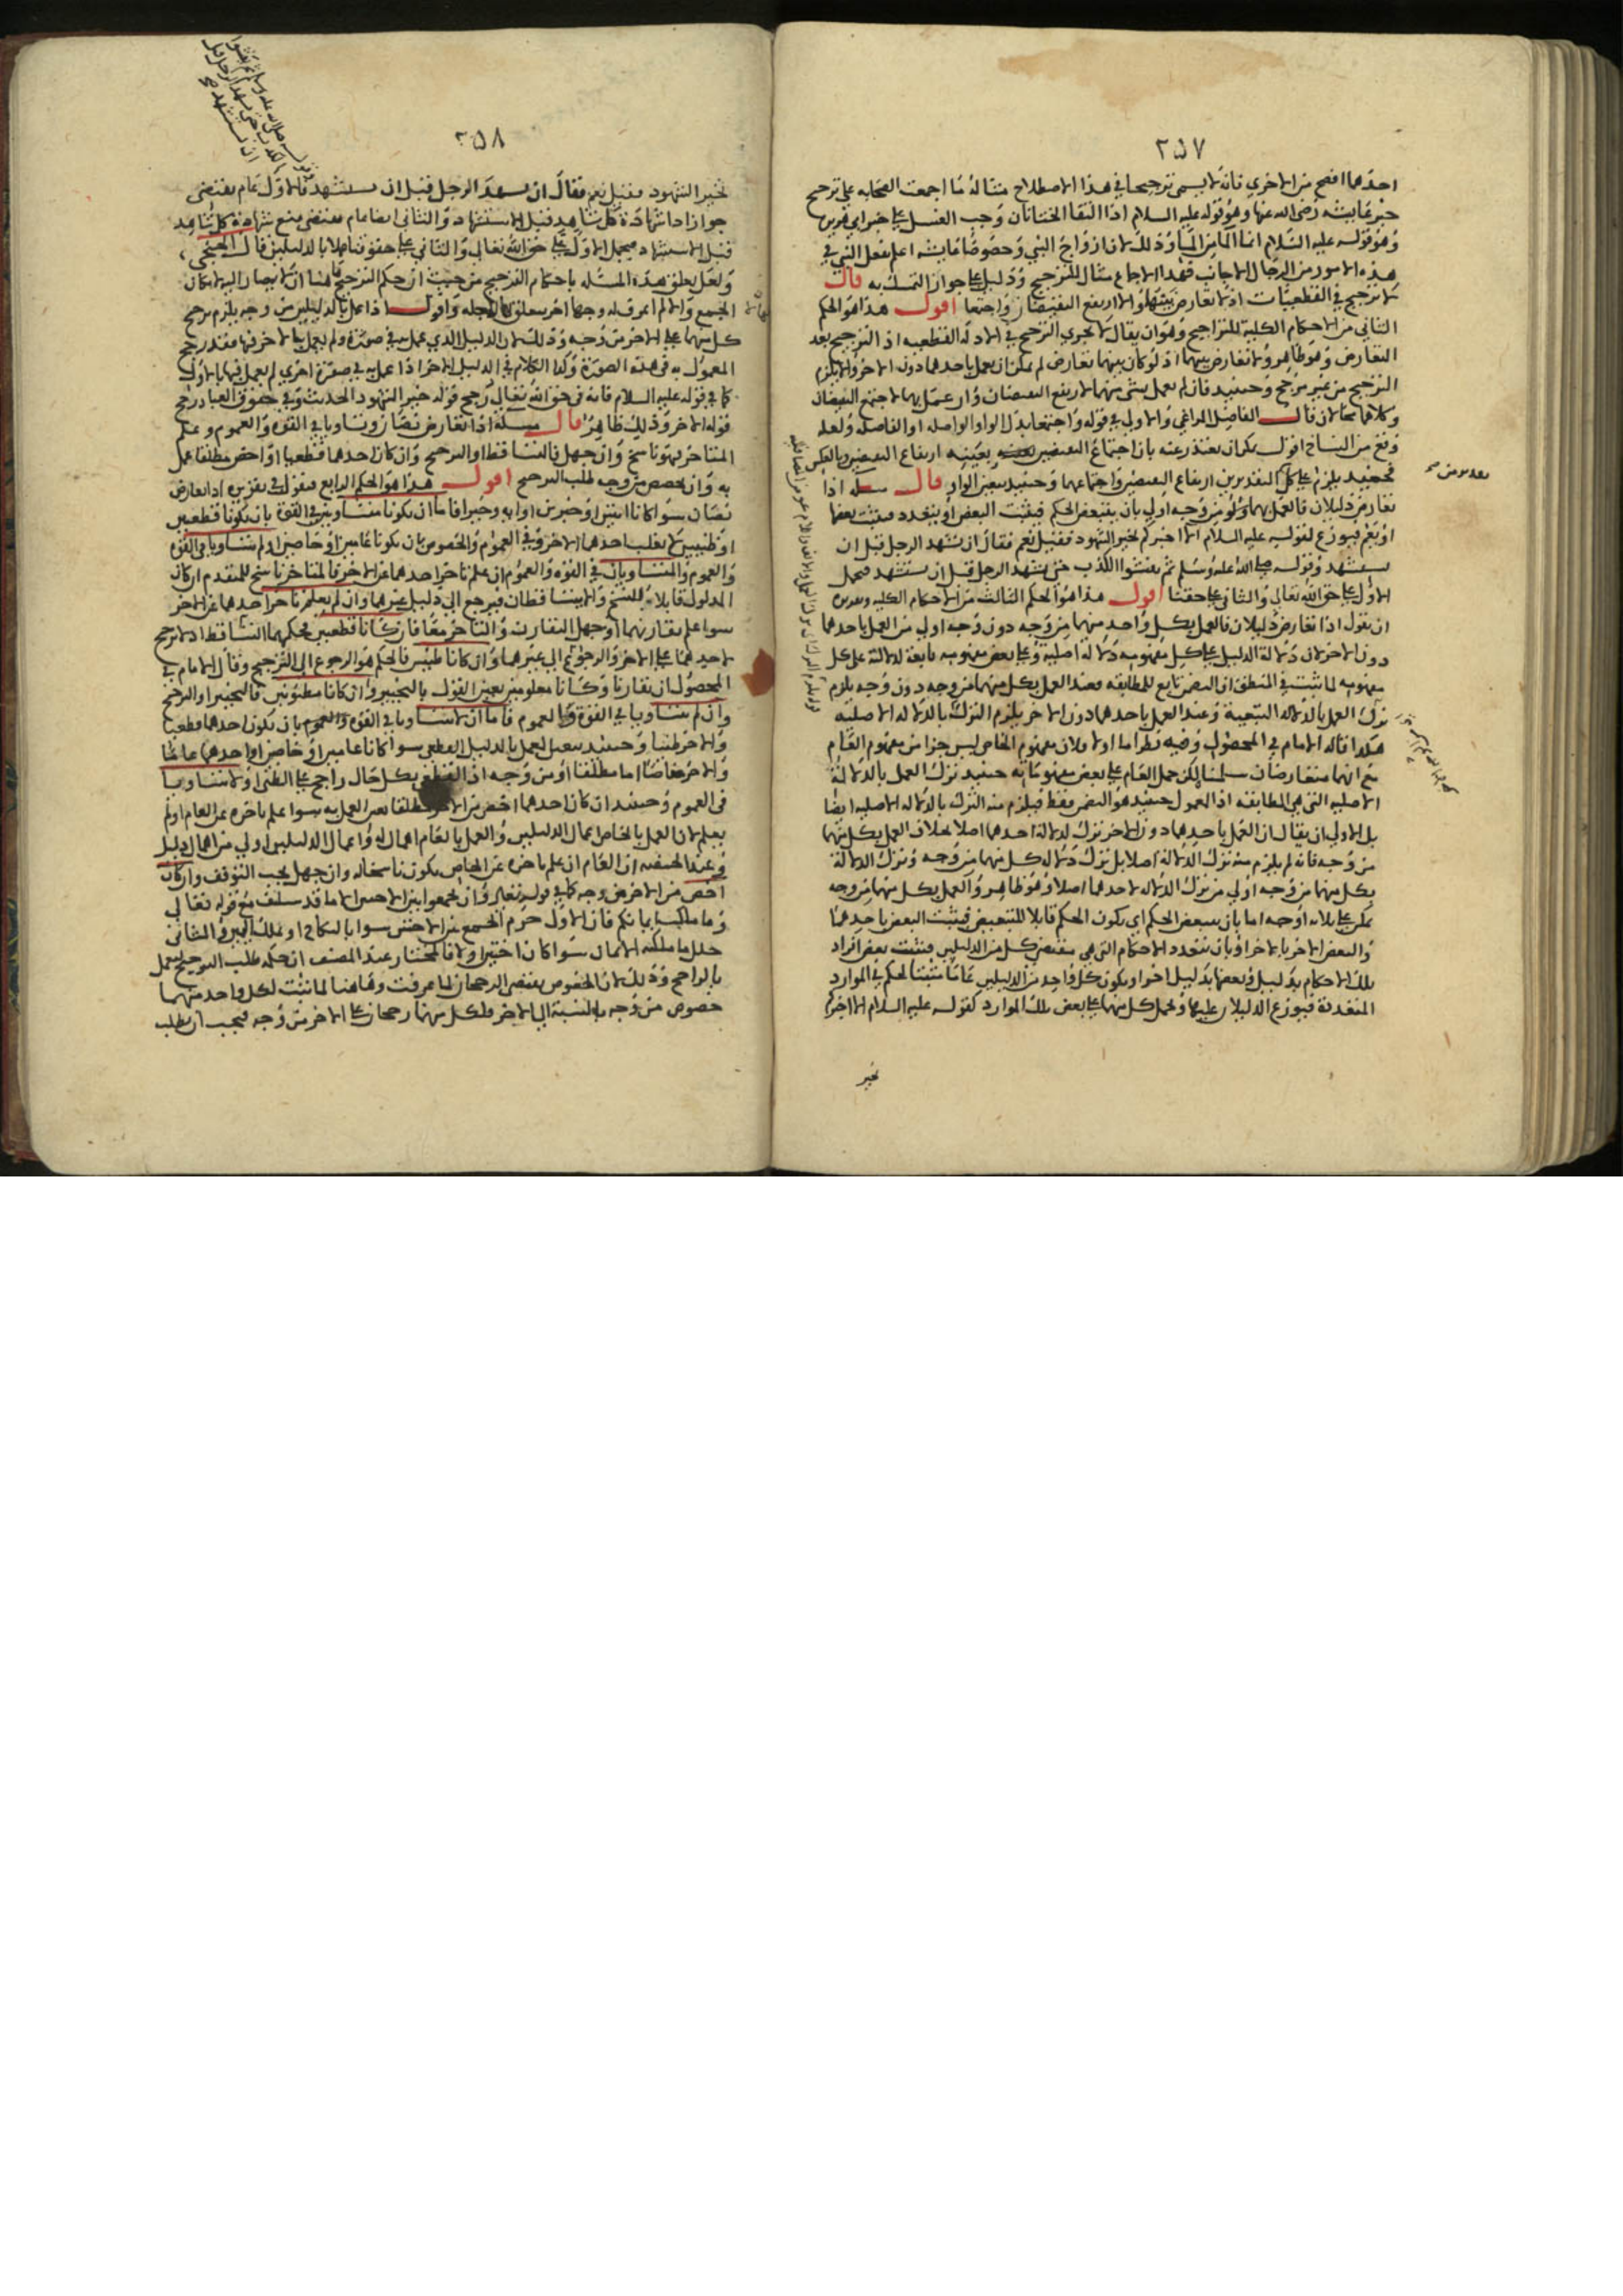 ٢٥٧
احدهما افصح من الاخرى فانه لا يسمى ترجيحا في هذا الاصطلاح مثاله ما اجمعت الصحابه على ترجيح
خبر عايشه رضى الله عنها وهو قوله عليه السلام اذا التقا الختانان وجب الغسل على خبر ابي هريره
وهو قوله عليه السلام انما الما من الما وذلك لان ازواج النبي وخصوصا عايشه اعلم بفعل النبي في
هذه الامور من الرجال الاجانب فهذا الاجماع مثال للترجيح ودليل على جواز التمسك به قال
لا ترجيح في القطعيات اذ لا تعارض بينها والا ارتفع النقيضان واجتمعا اقول هذا هو الحكم
الثاني من الاحكام الكلية للتراجيح وهو ان يقال لا يجري الترجيح في الادله القطعيه اذ الترجيح بعد
التعارض وهو ظاهر ولا تعارض بينهما اذ لو كان بينهما تعارض لم يمكن ان يعمل باحدهما دون الاخر والا يلزم
الترجيح من غير مرجح وحينيد فان لم يعمل بشى منهما لارتفع النقيضان وان عمل بهما لاجتمع النقيضان
وكلاهما محالان قال الفاضل المراغي والاولى في قوله واجتمعا بدل الواو الواصله او الفاصله ولعله
وقع من النساخ اقول يمكن ان يعتذر عنه بان اجتماع النقيضين بعينه ارتفاع النقيضين وبالعكس
فحينيد يلزم على كل التقديرين ارتفاع النقيضين واجتماعهما وحينيد يتعين الواو قال مسله اذا
تعارض دليلان فالعمل بهما ولو من وجه اولى بان يتبعض الحكم فيثبت البعض او يتعدد فيثبت بعضها
او يعم فيوزع لقوله عليه السلام الا اخبركم بخير الشهود فقيل نعم فقال ان يشهد الرجل قبل ان
يستشهد وقوله صلى الله عليه وسلم ثم يفشوا الكذب حتى يشهد الرجل قبل ان يستشهد فيحمل
الاول على حق الله تعالى والثاني على حقنا اقول هذا هو الحكم الثالث من الاحكام الكليه وتقريره
ان نقول اذا تعارض دليلان فالعمل بكل واحد منهما من وجه دون وجه اولى من العمل باحدهما
دون الاخر لان دلالة الدليل على كل مفهومه دلالة اصلية وعلى بعض مفهومه تابعة لدلالته على كل
مفهومه لما ثبت في المنطق ان التضمن تابع للمطابقه فعند العمل بكل منهما من وجه دون وجه يلزم
ترك العمل بالدلاله التبعية وعند العمل باحدهما دون الاخر يلزم الترك بالدلاله الاصليه
هكذا قاله الامام في المحصول وفيه نظر اما اولا فلان مفهوم الخاص ليس جزا من مفهوم العام
مع انهما متعارضان سلمنا لكن حمل العام على بعض مفهوماته حينيد ترك العمل بالدلالة
الاصليه التي هي المطابقه اذ المعمول حينيد هو التضمن فقط فيلزم منه الترك بالدلاله الاصليه ايضا
بل الاولى ان يقال ان العمل باحدهما دون الاخر ترك لدلالة احدهما اصلا بخلاف العمل بكل منهما
من وجه فانه لم يلزم منه ترك الدلالة اصلا بل ترك دلاله كل منهما من وجه وترك الدلالة
بكل منهما من وجه اولى من ترك الدلاله لاحدهما اصلا وهو ظاهر والعمل بكل منهما من وجه
يمكن على ثلاثه اوجه اما بان يتبعض الحكم اي يكون الحكم قابلا للتبعيض فيثبت البعض باحدهما
والبعض الاخر بالاخر او بان يتعدد الاحكام التي هي مقتضى كل من الدليلين فيثبت بعض افراد
تلك الاحكام بدليل وبعضها بدليل اخر او يكون كل واحد من الدليلين عاما مثبتا لحكم في الموارد
المتعددة فيوزع الدليلان عليها ويحمل كل منهما على بعض تلك الموارد كقوله عليه السلام الا اخبركم
بخير
٢٥٨
بخير الشهود فقيل نعم فقال ان يشهد الرجل قبل ان يستشهد فالاول عام يقتضى
جواز ادا شهادة كل شاهد قبل الاستشهاد والثاني ايضا عام يقتضى منع شهادة كل شاهد
قبل الاستشهاد فيحمل الاول على حق الله تعالى والثاني على حقوقنا عملا بالدليلين قال الخنجي
ولعل تعلق هذه المسئله باحكام الترجيح من حيث ان حكم الترجيح هنا ان لا يصار اليه لامكان
الجمع والا لم اعرف له وجها اخر يتعلق واقول اذا عمل بالدليلين من وجه يلزم ترجيح
كل منهما على الاخر من وجه وذلك لان الدليل الذي عمل به في صورة ولم يعمل بالاخر فيها فقد رجح
المعمول به في هذه الصورة وكذا الكلام في الدليل الاخر اذا عمل به في صورة اخرى لم يعمل فيها بالاول
كما في قوله عليه السلام فانه في حق الله تعالى رجح قوله خير الشهود الحديث وفي حقوق العباد رجح
قوله الاخر وذلك ظاهر قال مسلة اذا تعارض نصان وتساويا في القوة والعموم وعلم
المتاخر فهو ناسخ وان جهل فالتساقط او الترجيح وان كان احدهما قطعيا او اخص مطلقا عمل
به وان تخصص من وجه طلب الترجيح اقول هذا هو الحكم الرابع فنقول في تقريره اذا تعارض
نصان سوا كانا ايتين او خبرين او ايه وخبرا فاما ان يكونا متساويين في القوة بان يكونا قطعيين
او ظنيين لم يغلب احدهما الاخر وفي العموم والخصوص بان يكونا عامين او خاصين او لم يتساويا في القوه
والعموم والمتساويان في القوه والعموم ان علم تاخر احدهما عن الاخر فالمتاخر ناسخ للمتقدم ان كان
المدلول قابلا للنسخ والا يتساقطان فيرجع الى دليل غيرهما وان لم يعلم تاخر احدهما عن الاخر
سوا علم تقارنهما او جهل التقارن والتاخر معا فان كانا قطعيين فحكمهما التساقط اذ لا ترجيح
لاحدهما على الاخر والرجوع الى غيرهما وان كانا ظنيين فالحكم هو الرجوع الى الترجيح وقال الامام في
المحصول ان تقارنا وكانا معلومين تعين القول بالتخيير وان كانا مظنونين فالتخيير او الترجيح
وان لم يتساويا في القوة والعموم فاما ان لا يتساويا في القوه والعموم بان يكون احدهما قطعيا
والاخر ظنيا وحينيد يتعين العمل بالدليل القطعي سوا كانا عامين او خاصين او احدهما عاما
والاخر خاصا اما مطلقا او من وجه اذ القطعي بكل حال راجح على الظني او لا يتساويا
في العموم وحينيد ان كان احدهما اخص من الاخر مطلقا تعين العمل به سوا علم تاخره عن العام او لم
يعلم لان العمل بالخاص اعمال الدليلين والعمل بالعام اهمال له واعمال الدليلين اولى من اهمال دليل
وعند الحنفيه ان العام ان علم تاخره عن الخاص يكون ناسخا له وان جهل يجب التوقف وان كان
اخص من الاخر من وجه كما في قوله تعالى وان تجمعوا بين الاختين الا ما قد سلف مع قوله تعالى
وما ملكت ايمانكم فان الاول حرم الجمع بين الاختين سوا بالنكاح او بملك اليمين والثاني
حلل ما ملكته الايمان سوا كان اختين او لا فالمختار عند المصنف ان حكمه طلب الترجيح ليعمل
بالراجح وذلك لان الخصوص يقتضى الرجحان لما عرفت وهاهنا لما ثبت لكل واحد منهما
خصوص من وجه بالنسبة الى الاخر فلكل منهما رجحان على الاخر من وجه فيجب ان يطلب